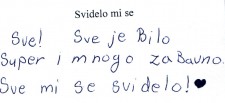 Svidelo mi se
Sve! Sve je Bilo
Super i mnogo zaBavno.
Sve mi se svidelo!♥